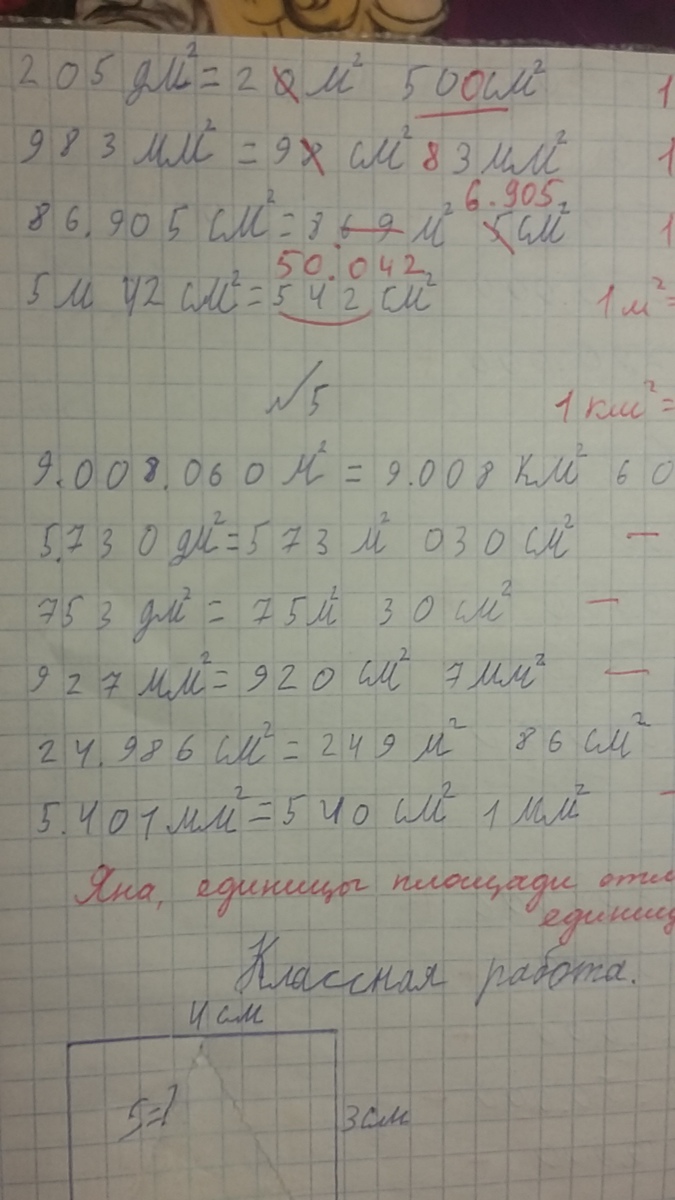 205 дм² = 20 м² 500 см² 1
983 мм² = 98 см² 83 мм² 1
6.905
86.905 см² = 869 м² 5 см² 1
50.042
5 м 42 см² = 542 см² 1 м² =
№5 1 км² =
9.008.060 м² = 9.008 км² 60
5.730 дм² = 573 м² 030 см² –
753 дм² = 75 м² 30 см² –
927 мм² = 920 см² 7 мм² –
24.986 см² = 249 м² 86 см²
5.401 мм² = 540 см² 1 мм² -
Яна, единицы площади отл
единиц
Классная работа.
4 см
S=?
3 см